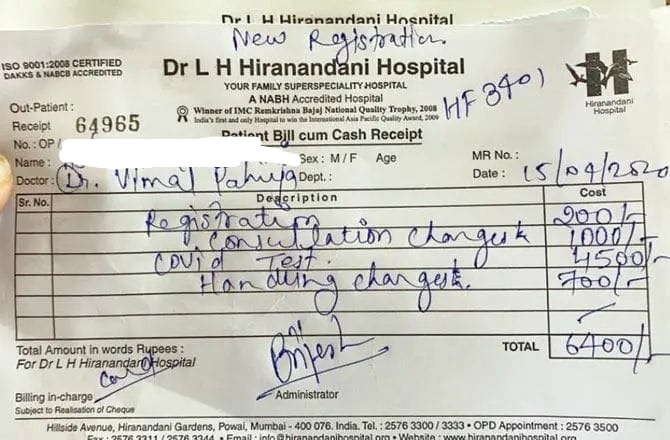 Dr L H Hiranandani Hospital
New Registration
ISO 9001:2008 CERTIFIED
DAKKS & NABCB ACCREDITED
Dr L H Hiranandani Hospital
YOUR FAMILY SUPERSPECIALITY HOSPITAL
A NABH Accredited Hospital
Winner of IMC Remkrishna Bajaj National Quality Trophy, 2008
India's first and only Hospital to win the International Asia Pacific Quality Award, 2009
HF 3401
Hiranandani
Hospital
Out-Patient :
Receipt 64965
No. : OP
Patient Bill cum Cash Receipt
Name : Sex : M / F Age MR No. :
Doctor : Dr. Vimal Pahuja Dept. : Date : 15/04/2020
Sr. No. Description Cost
Registration 200/-
Consultation Charges 1000/-
Covid Test. 4500/-
Handling charges 700/-
Total Amount in words Rupees : TOTAL 6400/-
For Dr L H Hiranandani Hospital
Brijesh
Billing in-charge Administrator
Subject to Realisation of Cheque
Hillside Avenue, Hiranandani Gardens, Powai, Mumbai - 400 076. India. Tel. : 2576 3300 / 3333 • OPD Appointment : 2576 3500
Fax : 2576 3311 / 2576 3344 • Email : info@hiranandanihospital.org • Website : www.hiranandanihospital.org